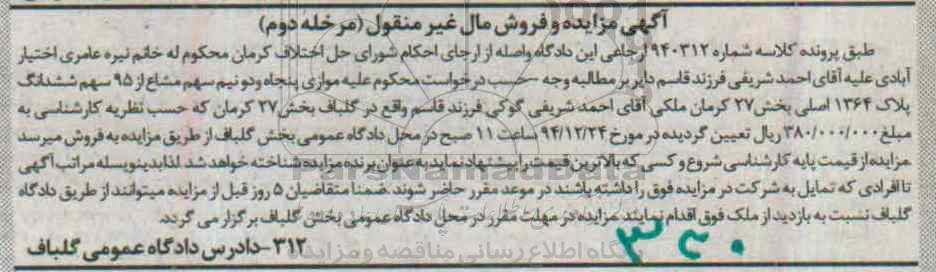 آگهی مزایده و فروش مال غیر منقول (مرحله دوم)
طبق پرونده کلاسه شماره ۹۴۰۳۱۲ ارجاعی این دادگاه واصله از اجرای احکام شورای حل اختلاف کرمان محکوم له خانم نیره عامری اختیار
آبادی علیه آقای احمد شریفی فرزند قاسم دایر بر مطالبه وجه حسب درخواست محکوم علیه موازی پنجاه و دو نیم سهم مشاع از ۹۵ سهم ششدانگ
پلاک ۱۳۶۴ اصلی بخش ۲۷ کرمان ملکی آقای احمد شریفی گوکی فرزند قاسم واقع در گلباف بخش ۲۷ کرمان که حسب نظریه کارشناسی به
مبلغ ۳۸۰/۰۰۰/۰۰۰ ریال تعیین گردیده در مورخ ۹۴/۱۲/۲۴ ساعت ۱۱ صبح در محل دادگاه عمومی بخش گلباف از طریق مزایده به فروش میرسد
مزایده از قیمت پایه کارشناسی شروع و کسی که بالاترین قیمت را پیشنهاد نماید به عنوان برنده مزایده شناخته خواهد شد لذا بدینوسیله مراتب آگهی
تا افرادی که تمایل به شرکت در مزایده فوق را داشته باشند در موعد مقرر حاضر شوند. ضمنا متقاضیان ۵ روز قبل از مزایده میتوانند از طریق دادگاه
گلباف نسبت به بازدید از ملک فوق اقدام نمایند مزایده در مهلت مقرر در محل دادگاه عمومی بخش گلباف برگزار می گردد.
۳۱۲-دادرس دادگاه عمومی گلباف
ParsNamadData
پایگاه اطلاع رسانی مناقصه و مزایده